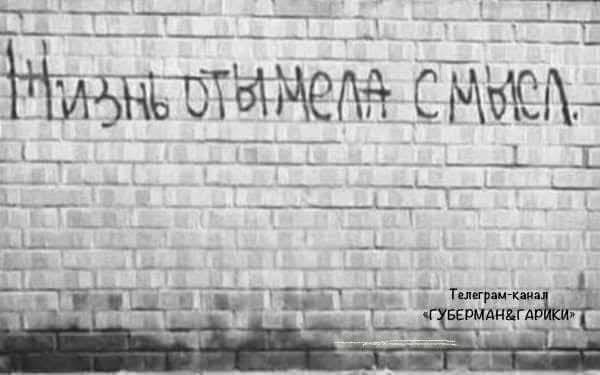 Жизнь отымела смысл.
Телеграм-канал
«ГУБЕРМАН&ГАРИКИ»